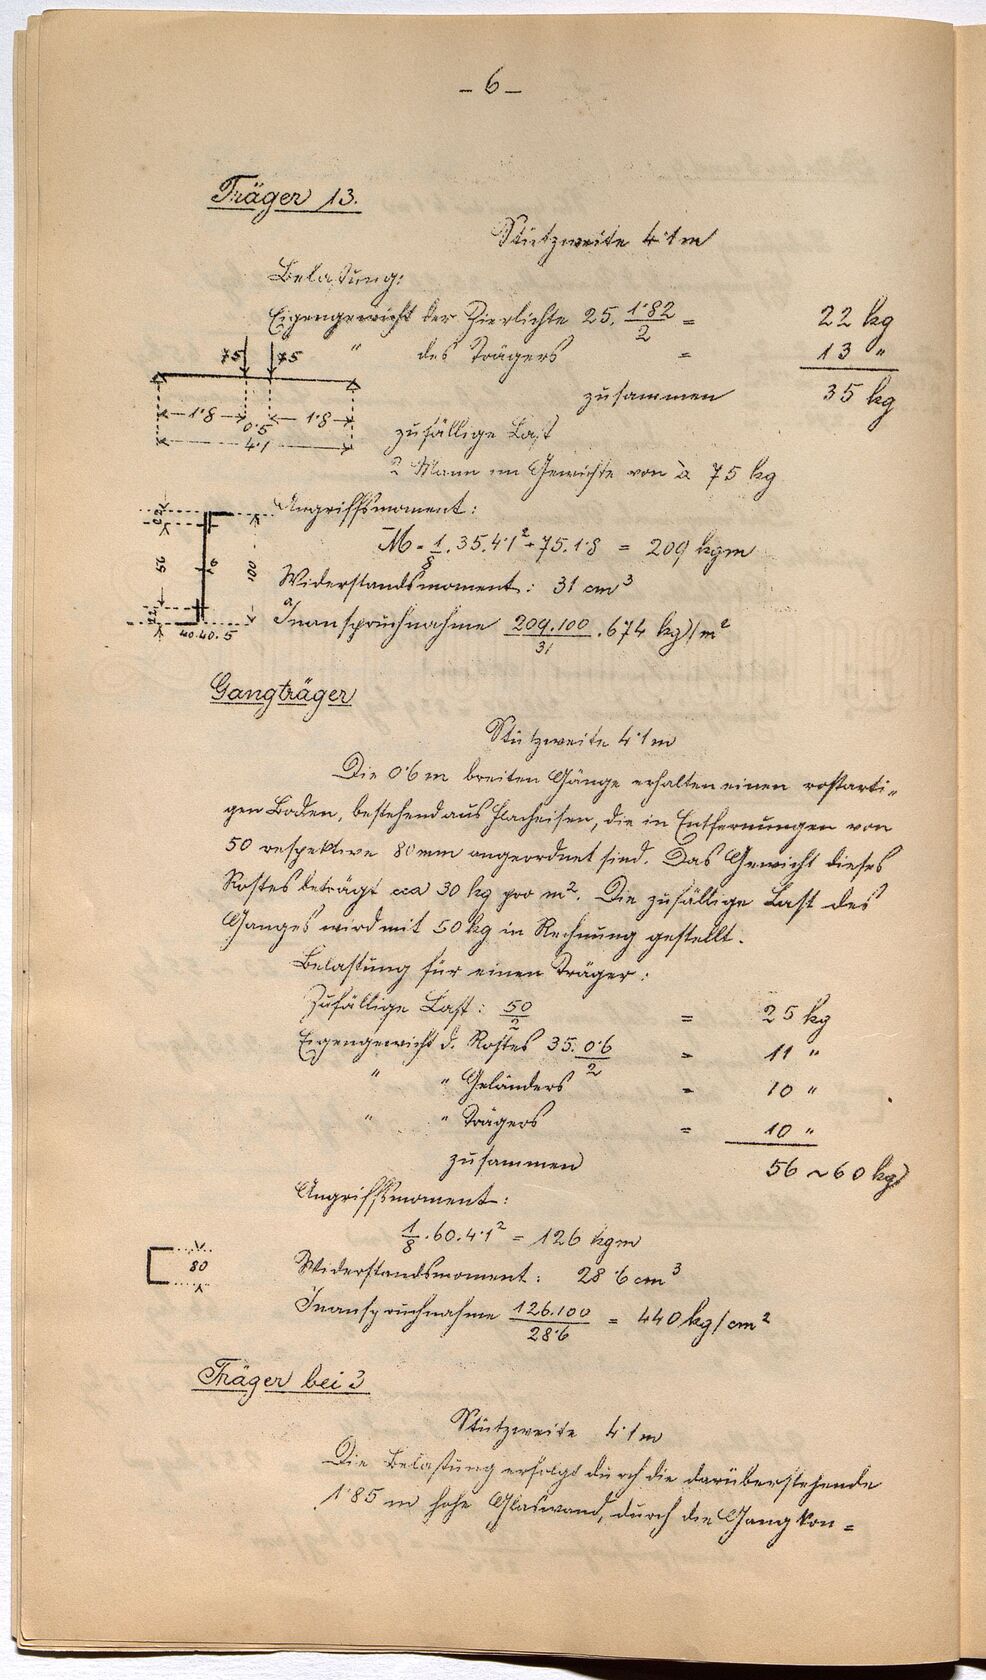 – 6 –
Träger 13.
Stützweite 4·1 m
Belastung:
Eigengewicht der Zierlichte 25. 1·82/2 = 22 kg
" des Trägers = 13 "
zusammen 35 kg
75 75
1·8 0·5 1·8
4·1
zufällige Last
2 Mann im Gewichte von à 75 kg
Angriffsmoment:
M = 1/8 . 35. 4·1² + 75. 1·8 = 209 kgm
Widerstandsmoment: 31 cm³
Inanspruchnahme 209.100/31 . 674 kg/m²
100
40.40.5
Gangträger
Stützweite 4·1 m
Die 0·6 m breiten Gänge erhalten einen rostarti-
gen Boden, bestehend aus Flacheisen, die in Entfernungen von
50 respektive 80 mm angeordnet sind. Das Gewicht dieses
Rostes beträgt cca 30 kg pro m². Die zufällige Last des
Ganges wird mit 50 kg in Rechnung gestellt.
Belastung für einen Träger:
Zufällige Last: 50/2 = 25 kg
Eigengewicht d. Rostes 35. 0·6/2 = 11 "
" " Geländers = 10 "
" " Trägers = 10 "
zusammen 56 ~ 60 kg
Angriffsmoment:
1/8 . 60. 4·1² = 126 kgm
80
Widerstandsmoment: 28·6 cm³
Inanspruchnahme 126.100/28·6 = 440 kg/cm²
Träger bei 3
Stützweite 4·1 m
Die Belastung erfolgt durch die darüberstehende
1·85 m hohe Glaswand, durch die Gangkon=